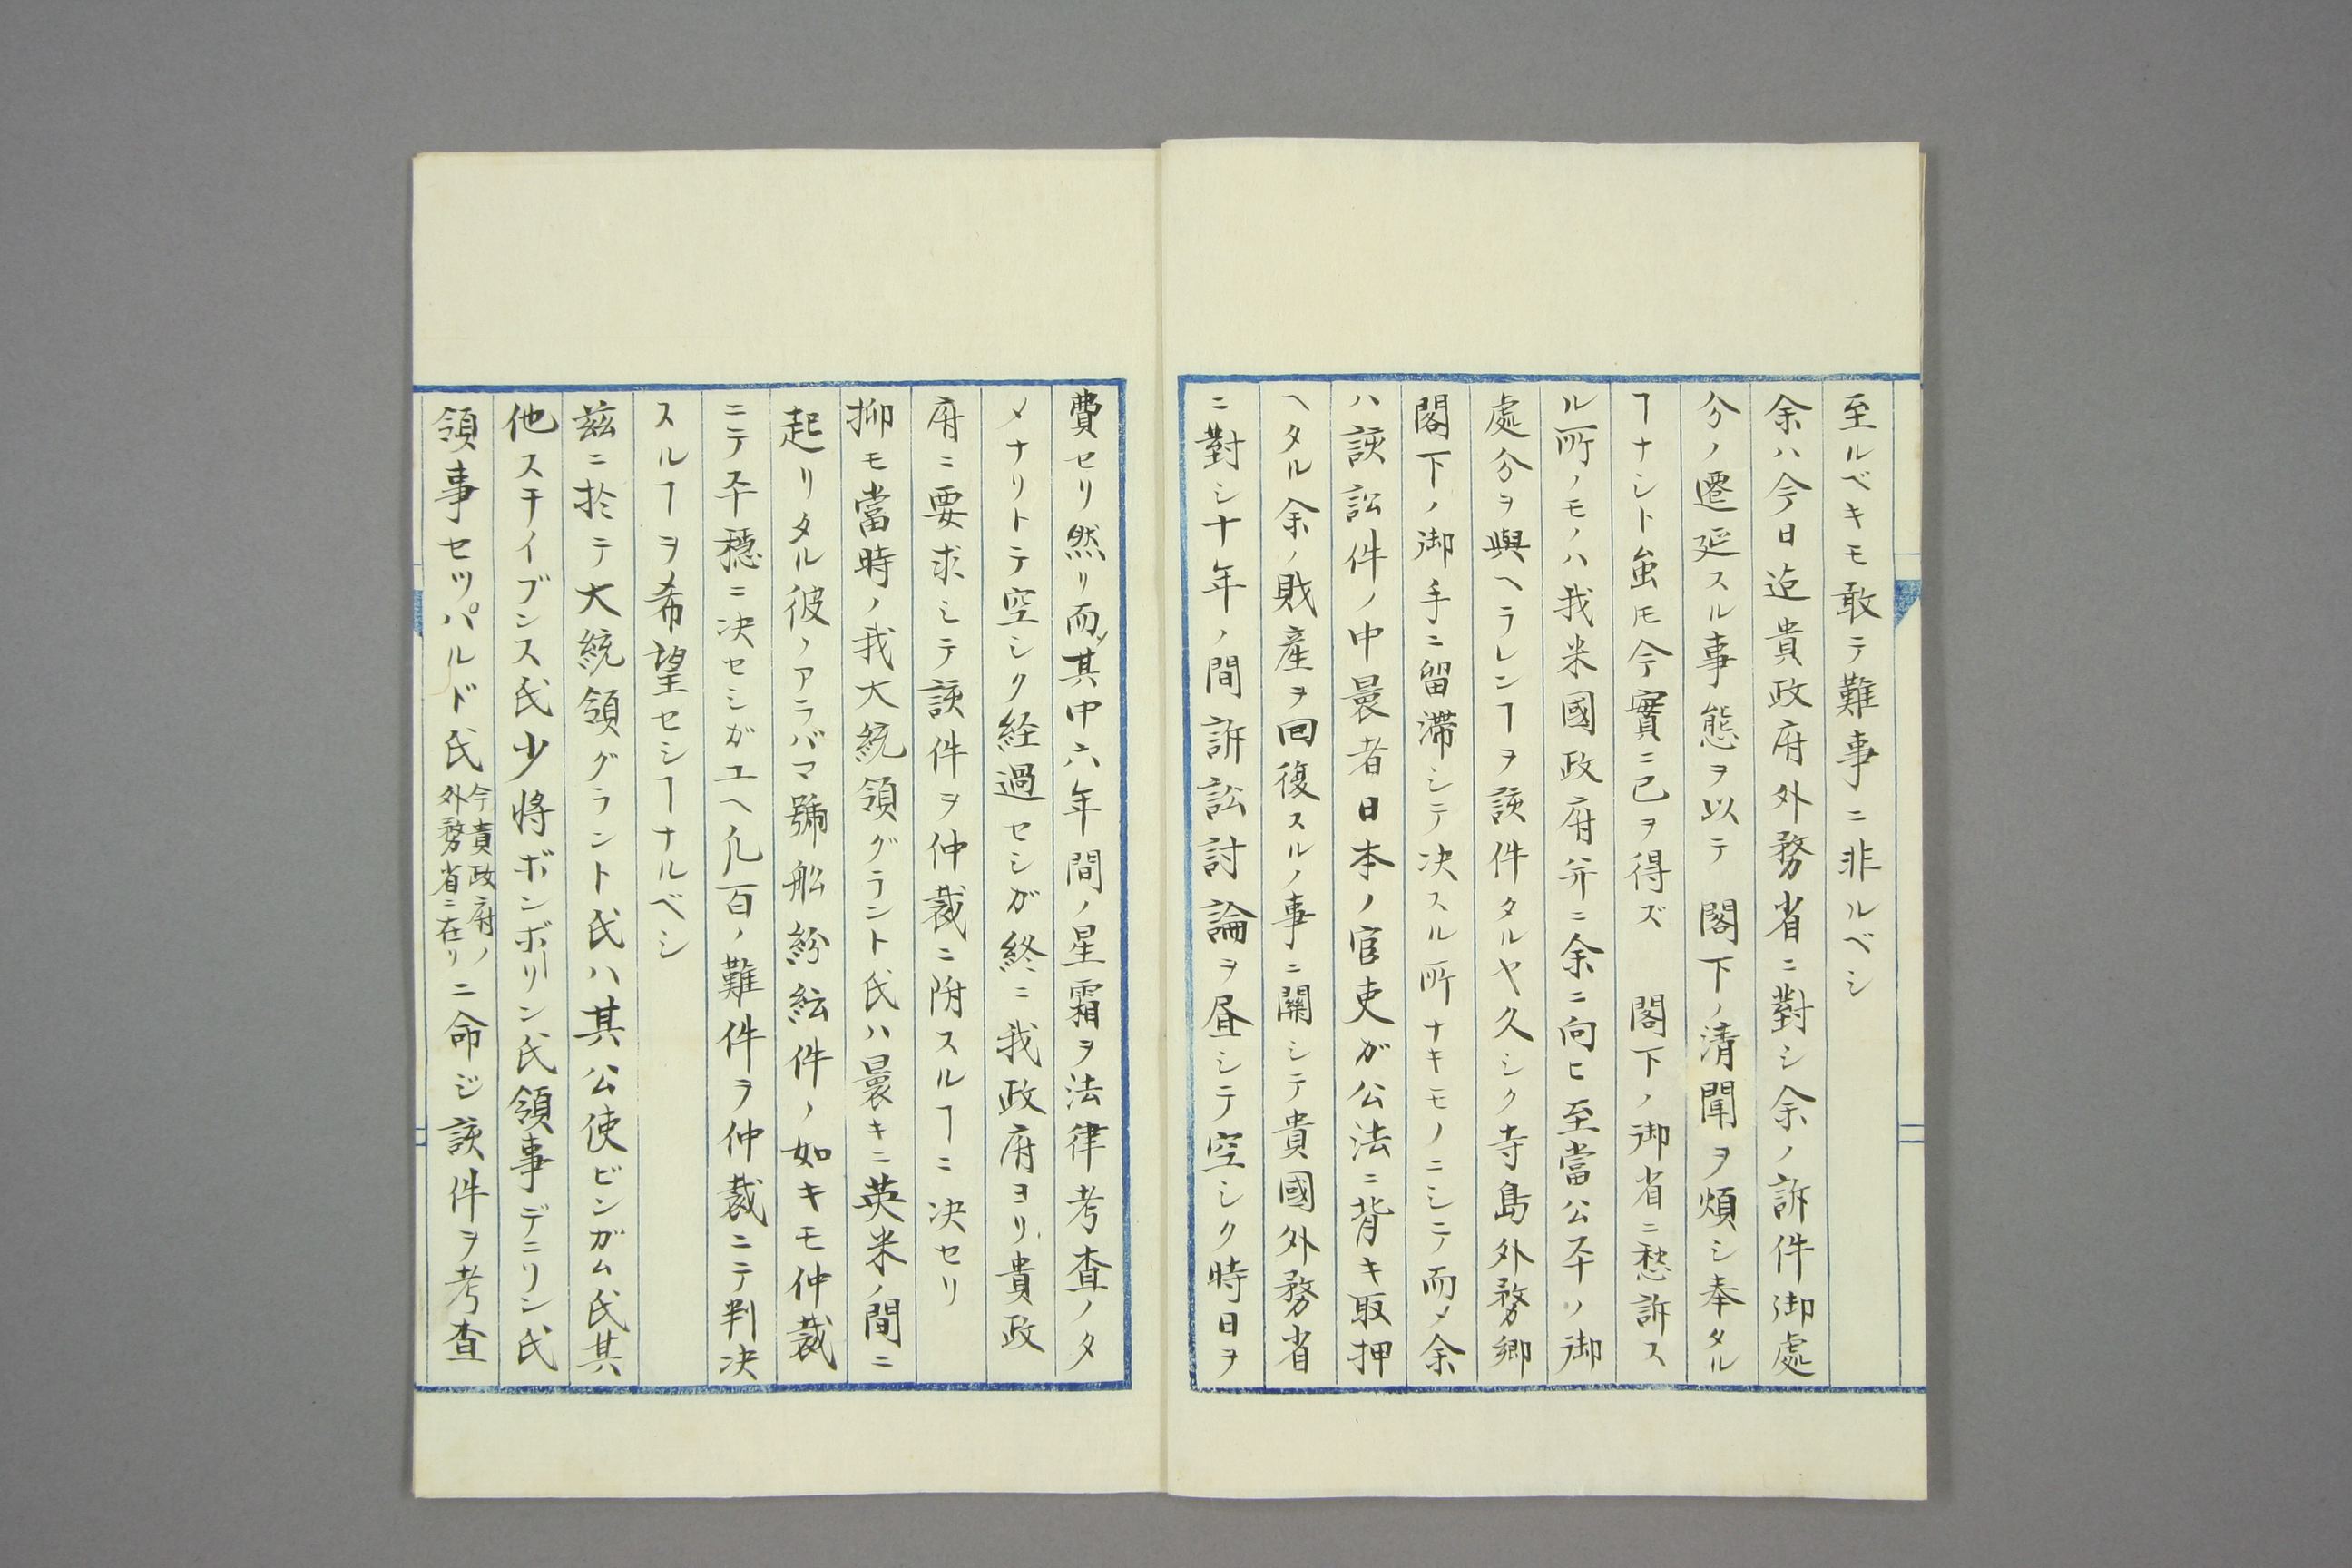 至ルベキモ敢テ難事ニ非ルベシ
余ハ今日迠貴政府外務省ニ對シ余ノ訴件御處
分ノ遷延スル事態ヲ以テ　閣下ノ清聞ヲ煩シ奉タル
ヿナシト虽𪜈今實ニ已ヲ得ズ　閣下ノ御省ニ愁訴ス
ル所ノモノハ我米國政府并ニ余ニ向ヒ至當公平ノ御
處分ヲ與ヘラレンヿヲ該件タルヤ久シク寺島外務卿
閣下ノ御手ニ留滞シテ决スル所ナキモノニシテ而〆余
ハ該訟件ノ中曩者日本ノ官吏ガ公法ニ背キ取押
ヘタル余ノ財産ヲ回復スルノ事ニ關シテ貴國外務省
ニ對シ十年ノ間訴訟討論ヲ昼シテ空シク時日ヲ
費セリ然リ而〆其中六年間ノ星霜ヲ法律考査ノタ
メナリトテ空シク経過セシガ終ニ我政府ヨリ貴政
府ニ要求シテ該件ヲ仲裁ニ附スルヿニ决セリ
抑モ當時ノ我大統領グラント氏ハ曩キニ英米ノ間ニ
起リタル彼ノアラバマ號船紛紜件ノ如キモ仲裁
ニテ平穏ニ决セシガユヘ凡百ノ難件ヲ仲裁ニテ判决
スルヿヲ希望セシヿナルベシ
茲ニ於テ大統領グラント氏ハ其公使ビンガム氏其
他スチイブンス氏少將ボンボーリン氏領事デニリン氏
領事セッパルド氏今貴政府ノ外務省ニ在リニ命ジ該件ヲ考査